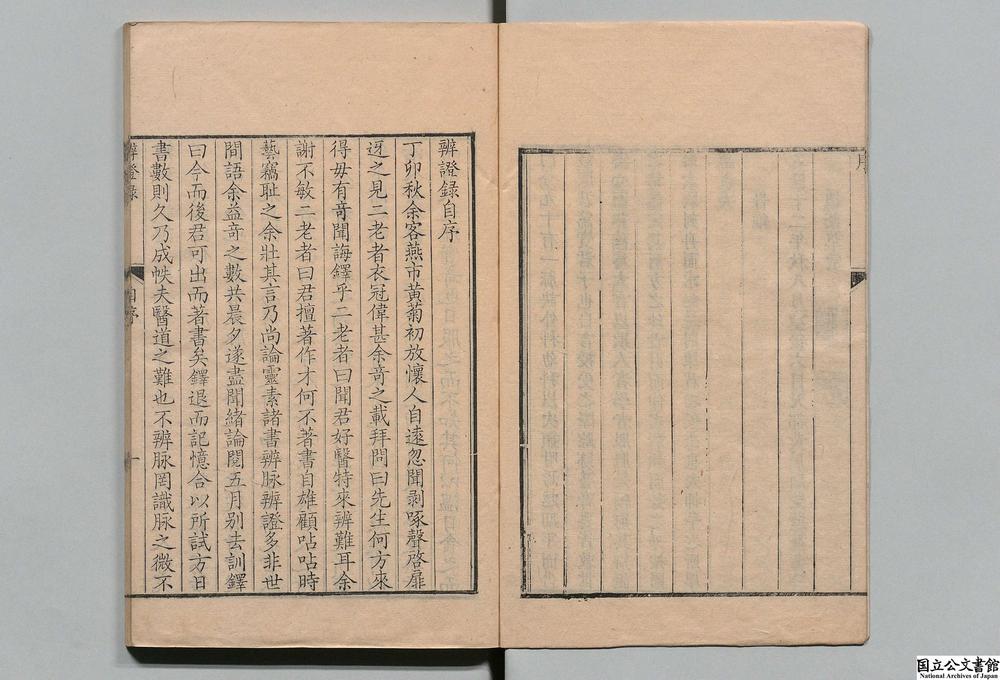 序
辨證錄自序
丁卯秋余客燕市黃菊初放懷人自遠忽聞剥啄聲啓扉
迓之見二老者衣冠偉甚余竒之載拜問曰先生何方來
得毋有竒聞誨鐸乎二老者曰聞君好醫特來辨難耳余
謝不敏二老者曰君擅著作才何不著書自雄顧呫呫時
藝竊耻之余壯其言乃尚論靈素諸書辨脉辨證多非世
間語余益竒之數共晨夕遂盡聞緒論閱五月别去訓鐸
曰今而後君可出而著書矣鐸退而記憶合以所試方日
書數則久乃成帙夫醫道之難也不辨脉罔識脉之微不
辨證錄
自序
一
国立公文書館
National Archives of Japan